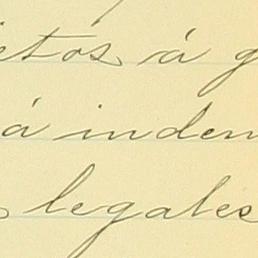 etos á g
á indem
s legales